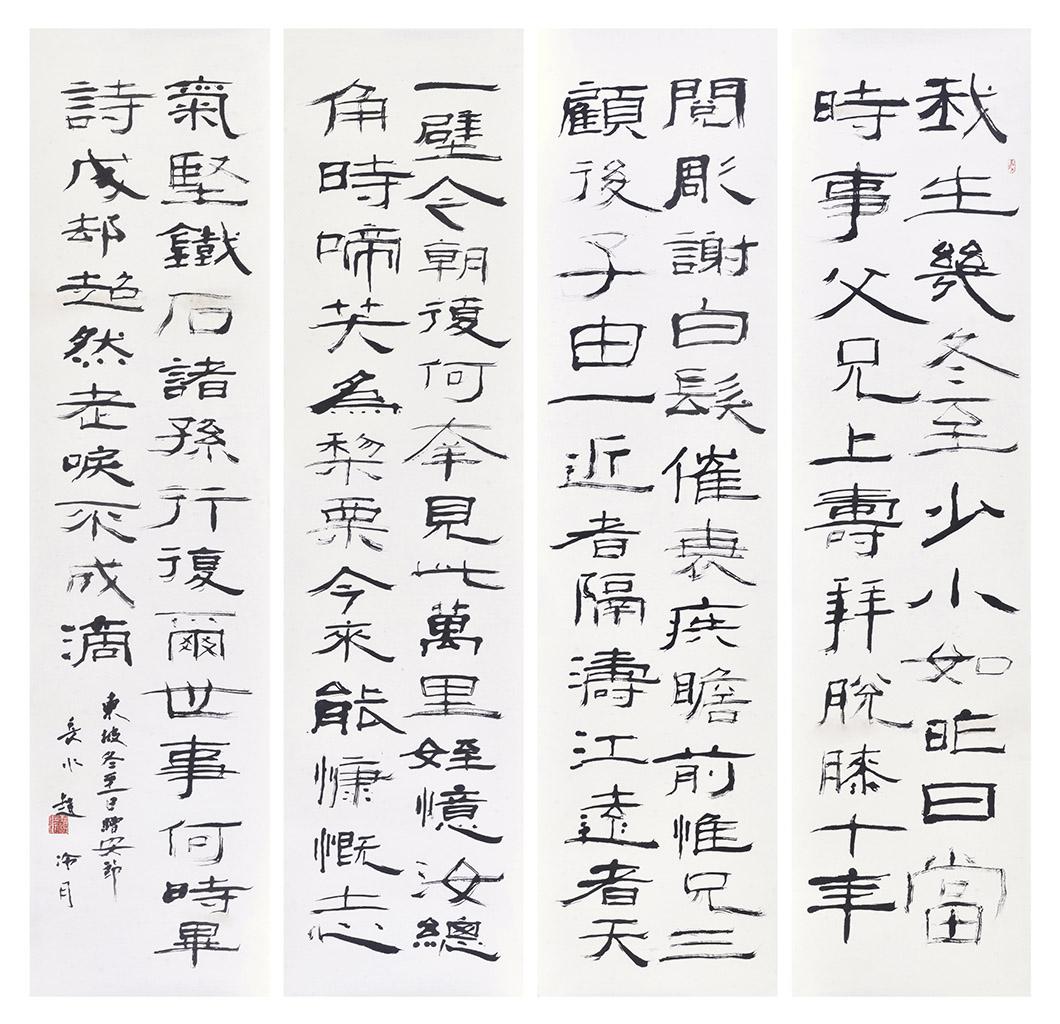 我生幾冬至少小如昨日當
時事父兄上壽拜脫膝十年
閱彫謝白髮催衰疾瞻前惟兄三
顧後子由一近者隔濤江遠者天
一壁今朝復何幸見此萬里姪憶汝總
角時啼笑為棃栗今來能慷慨志
氣堅鐵石諸孫行復爾世事何時畢
詩成却超然老淚不成滴
東坡冬至日贈安節